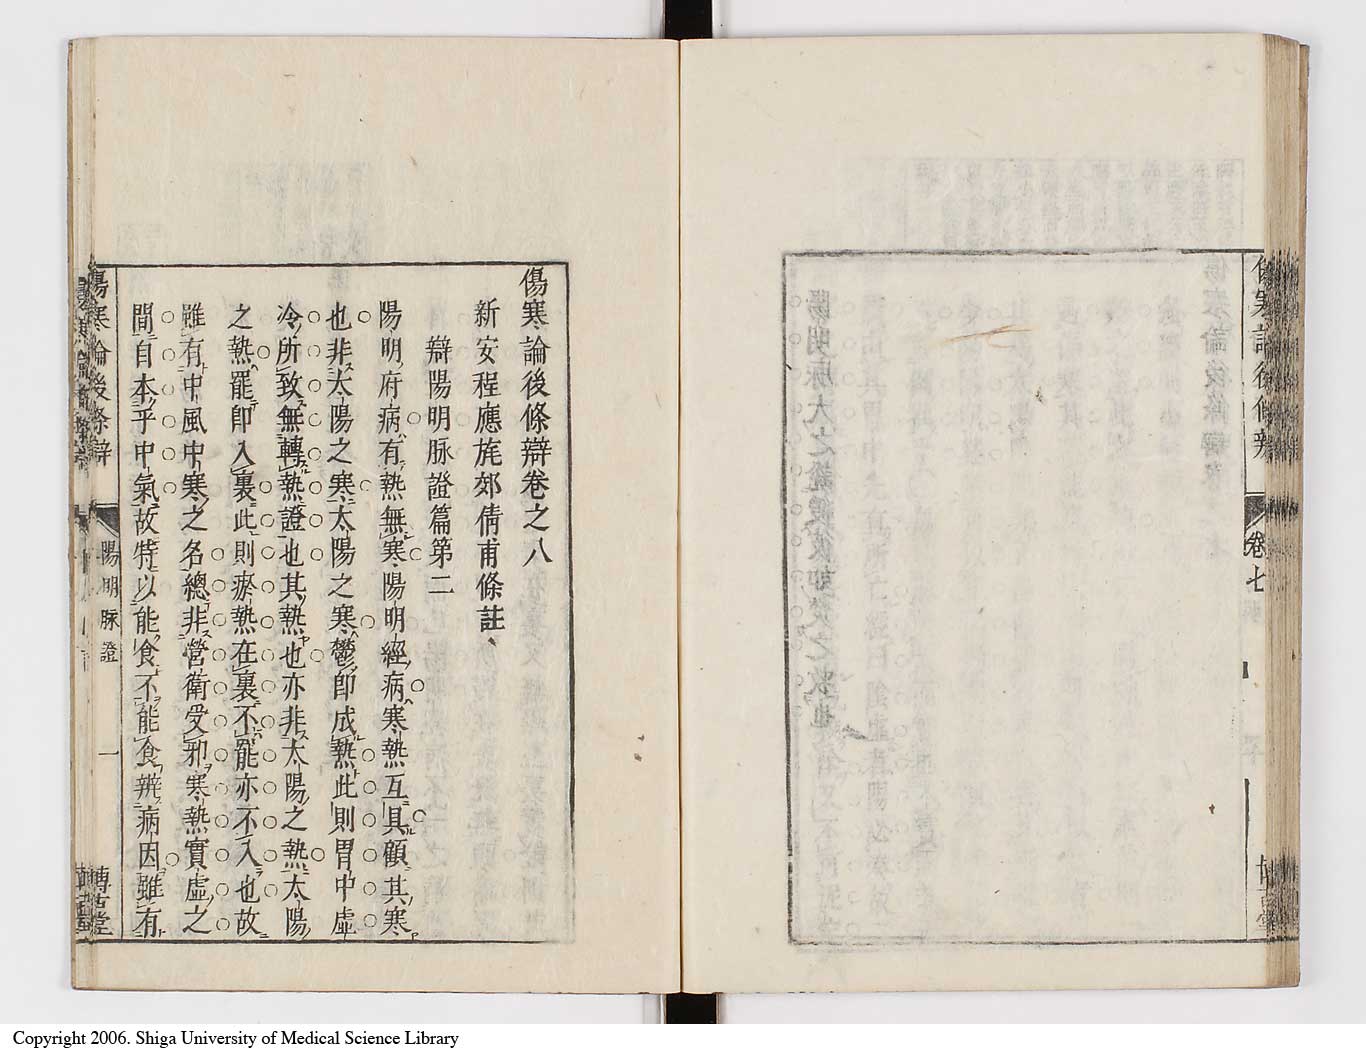 卷七
傷寒論後條辯卷之八
新安程應旄郊倩甫條註
辯陽明脉證篇第二
陽明府病有熱無寒陽明經病寒熱互具顧其寒
也非太陽之寒太陽之寒鬱即成熱此則胃中虛
冷所致無轉熱證也其熱也亦非太陽之熱太陽
之熱罷即入裏此則瘀熱在裏不能亦不入也故
雖有中風中寒之名總非營衛受邪寒熱實虛之
間自本乎中氣故特以能食不能食辨病因雖有
傷寒論後條辯
陽明脉證
一
博古堂
Copyright 2006. Shiga University of Medical Science Library